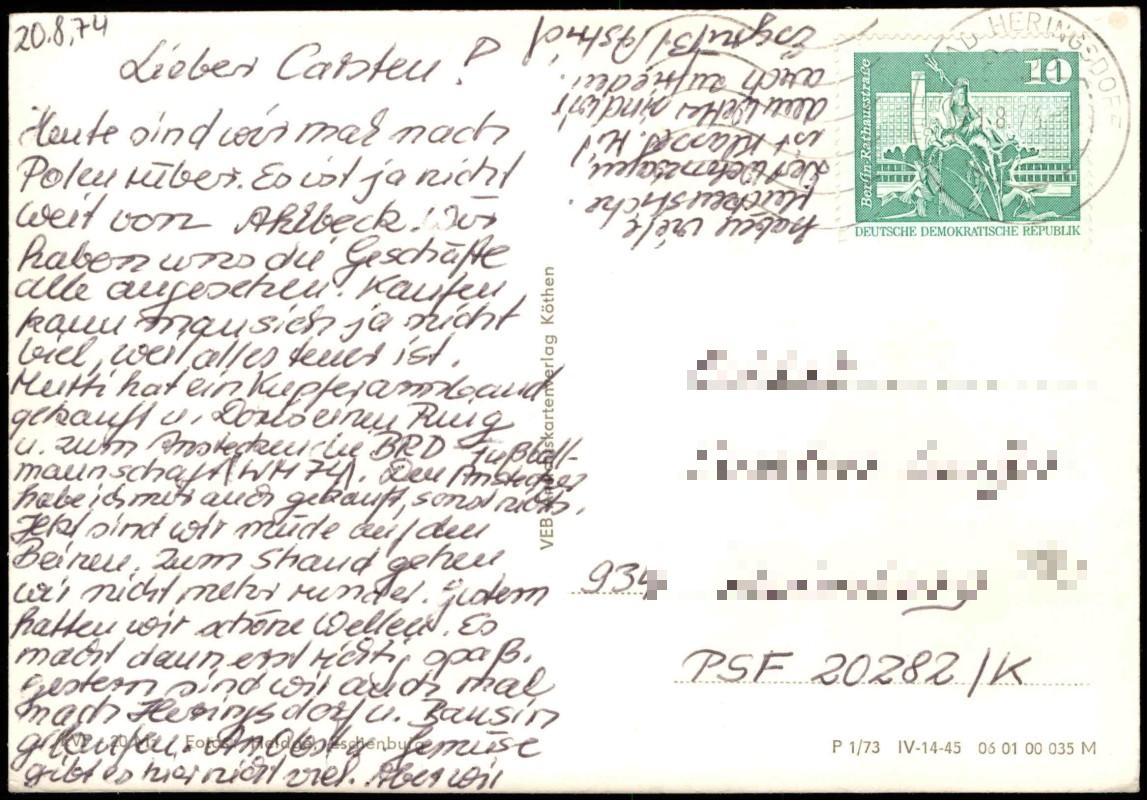 20.8.74
Lieber Carsten!
Heute sind wir mal nach
Polen rüber. Es ist ja nicht
weit von Ahlbeck. Wir
haben uns die Geschäfte
alle angesehen. Kaufen
kann man sich ja nicht
viel, weil alles teuer ist.
Mutti hat ein Kupferarmband
gekauft u. Doris einen Ring
u. zum Anstecken die BRD-Fußball-
mannschaft (WM 74). Den Anstecker
habe ich mir auch gekauft, sonst nichts.
Jetzt sind wir müde auf den
Beinen. Zum Strand gehen
wir nicht mehr runter. Gestern
hatten wir schöne Wellen. Es
macht dann erst richtig Spaß.
Gestern sind wir auch mal
nach Heringsdorf u. Bansin
gelaufen. An Obst u. Gemüse
gibt es hier nicht viel. Aber wir
haben viele
der
ist
sind wir
auch zufrieden.
Es grüßt Astrid
VEB Köthen
Fotos: Eschenburg
BAD HERINGSDORF
8.74
10
Berlin-Rathausstraße
DEUTSCHE DEMOKRATISCHE REPUBLIK
934
PSF 20282/K
P 1/73 IV-14-45 06 01 00 035 M